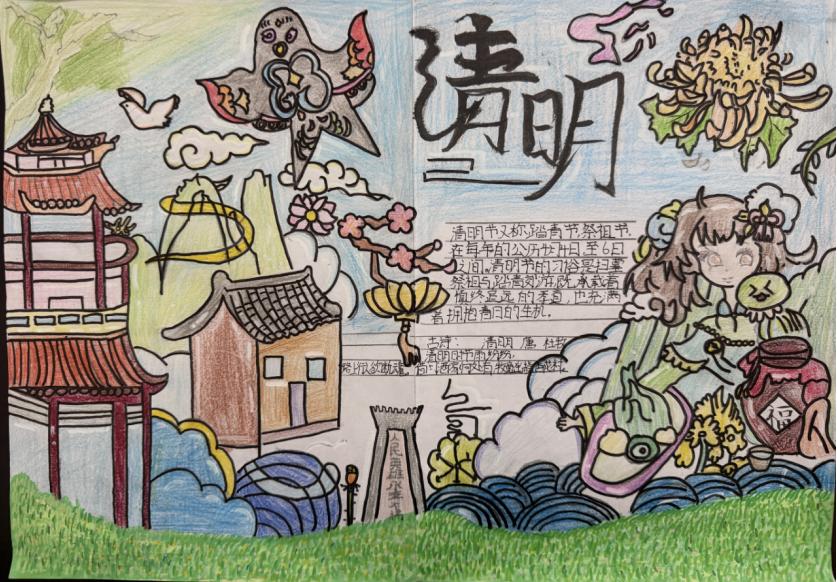 清明
清明节又称踏青节,祭祖节
在每年的公历4月4日至6日
之间。清明节的习俗是扫墓
祭祖与踏青郊游,既承载着
慎终追远的孝道,也充满
着拥抱春日的生机。
古诗: 清明 唐 杜牧
清明时节雨纷纷,
路上行人欲断魂。
福
人民英雄永垂不